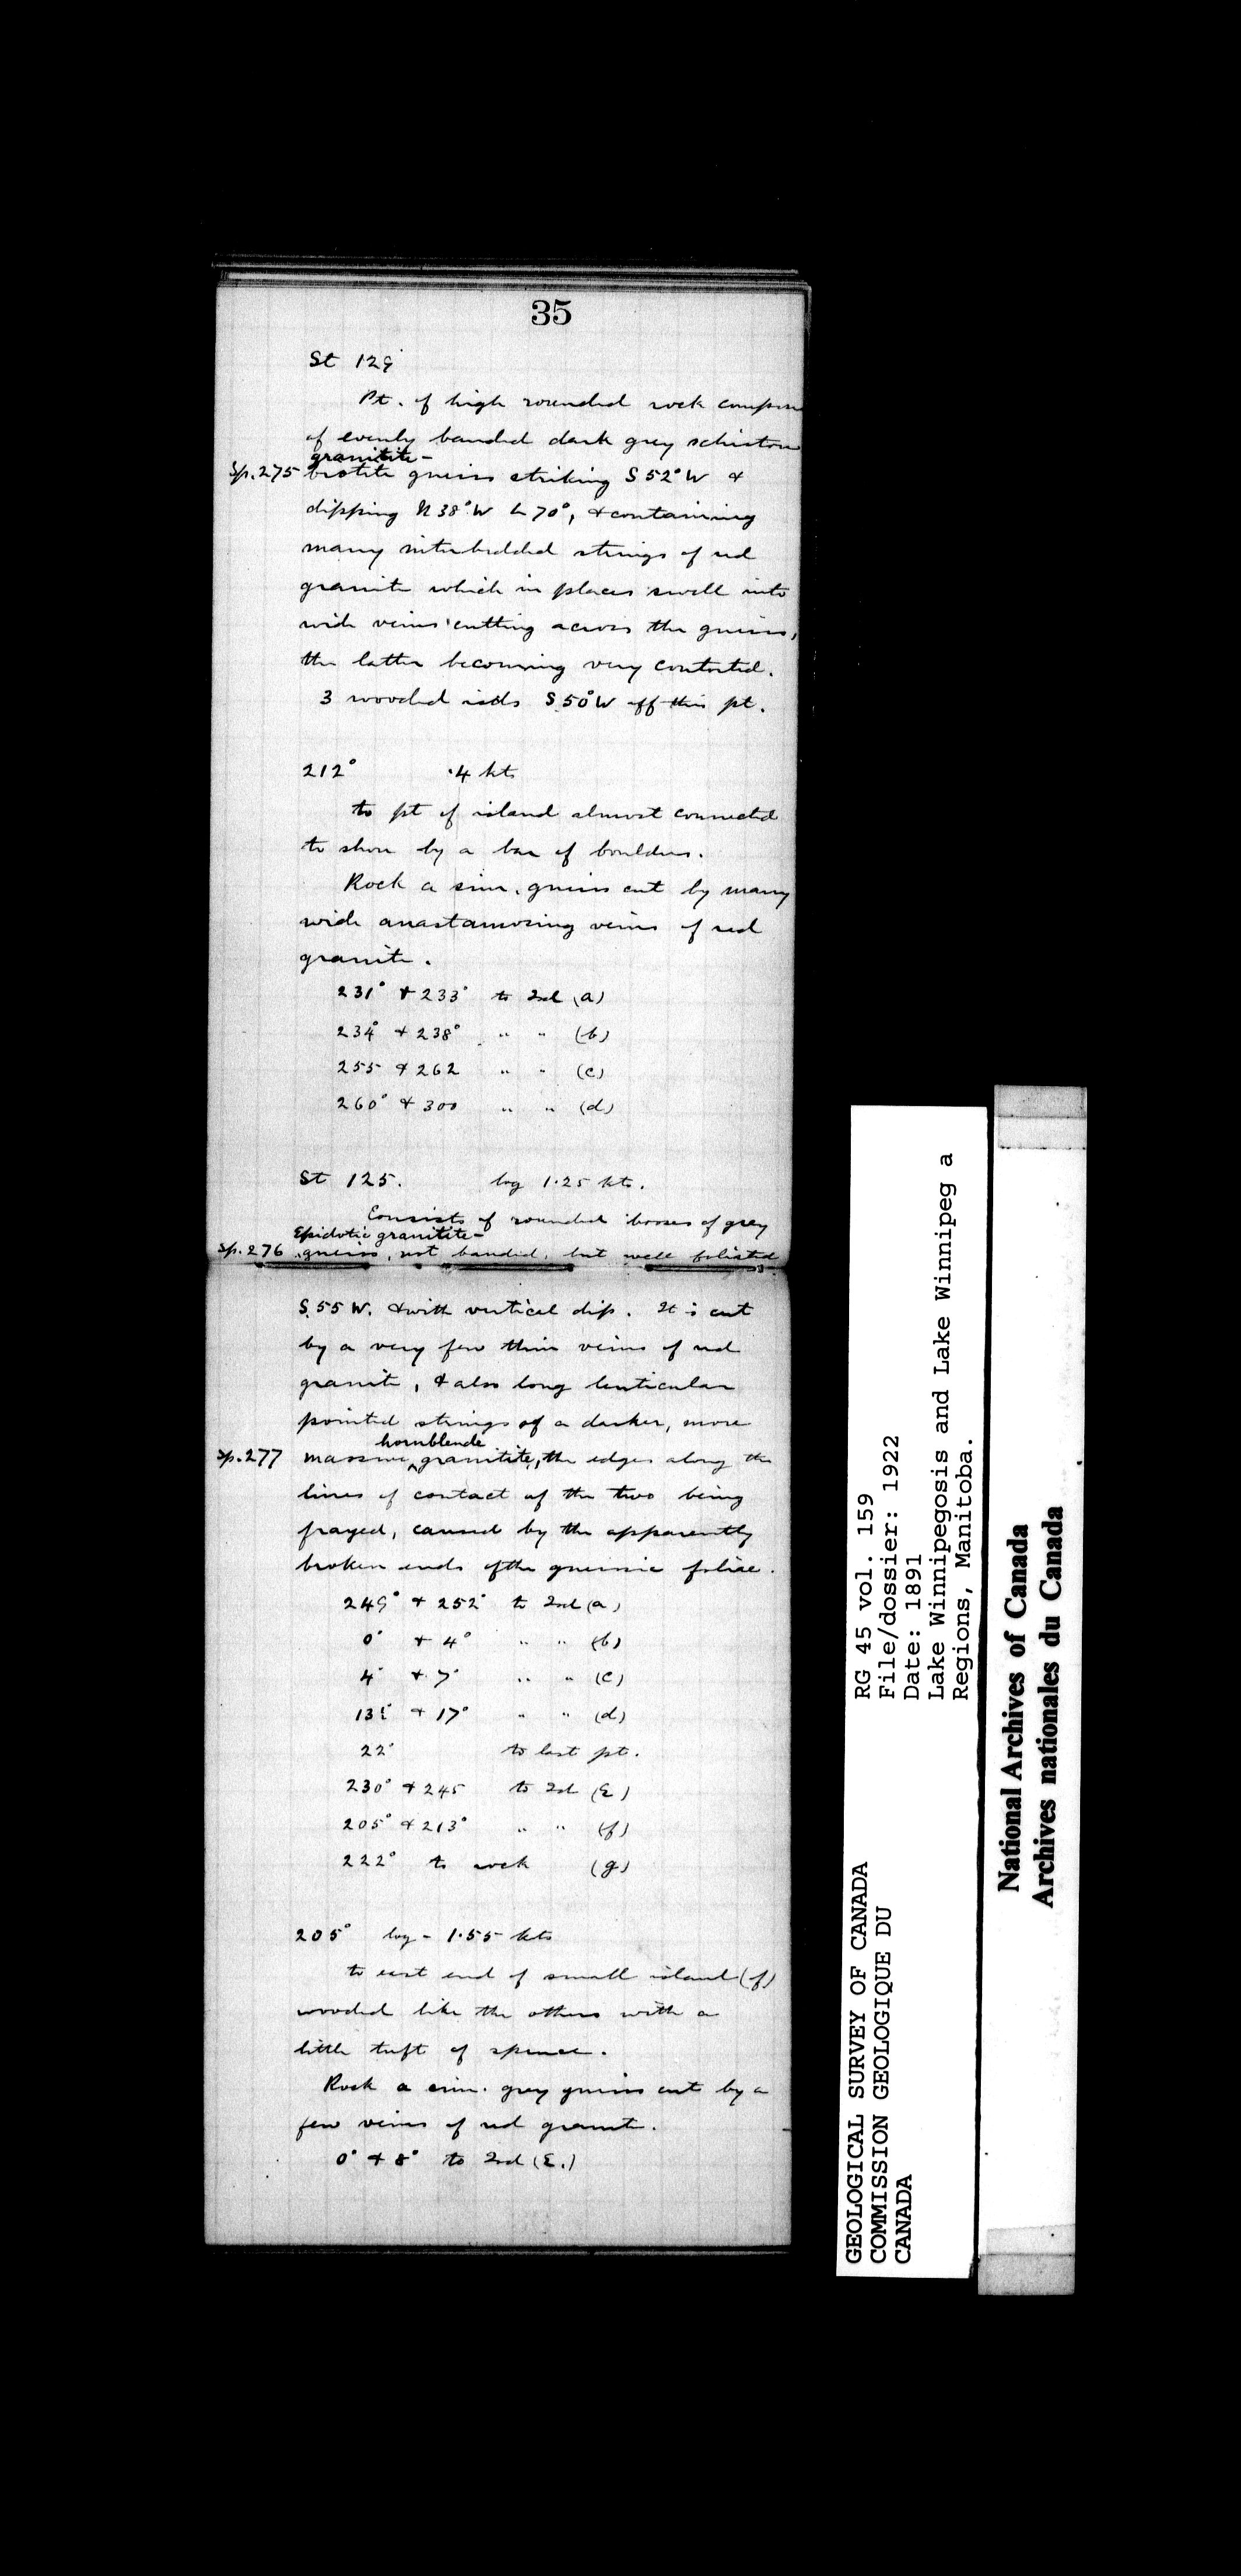 35
St 129
Pt. of high rounded rock compose
of evenly banded dark grey schistose
granitite-
Sp. 275 biotite gneiss striking S 52° W &
dipping N 38° W < 70°, & containing
many interbedded strings of red
granite which in places swell into
wide veins cutting across the gneiss,
the latter becoming very contorted.
3 wooded islds S 50° W off this pt.
212° .4 kts
to pt of island almost connected
to shore by a bar of boulders.
Rock a sim. gneiss cut by many
wide anastamosing veins of red
granite.
231° & 233° to 2nd (a)
234° & 238° " " (b)
255 & 262 " " (c)
260° & 300 " " (d)
St 125. log 1.25 kts.
Consists of rounded bosses of grey
Epidotic granitite-
Sp. 276 gneiss, not banded, but well foliated
S 55 W. & with vertical dip. It is cut
by a very few thin veins of red
granite, & also long lenticular
pointed strings of a darker, more
hornblende
Sp. 277 massive ^ granitite, the edges along the
lines of contact of the two being
frayed, caused by the apparently
broken ends of the gneissic foliae.
249° & 252° to 2nd (a)
0° & 4° " " (b)
4° & 7° " " (c)
& 17° " " (d)
22° to last pt.
230° & 245 to 2nd (E)
205° & 213° " " (f)
222° to rock (g)
205° log - 1.55 kts
to east end of small island (f)
wooded like the others with a
little tuft of spruce.
Rock a sim. grey gneiss cut by a
few veins of red granite.
0° & 8° to 2nd (E.)
GEOLOGICAL SURVEY OF CANADA
COMMISSION GEOLOGIQUE DU
CANADA
RG 45 vol. 159
File/dossier: 1922
Date: 1891
Lake Winnipegosis and Lake Winnipeg a
Regions, Manitoba.
National Archives of Canada
Archives nationales du Canada